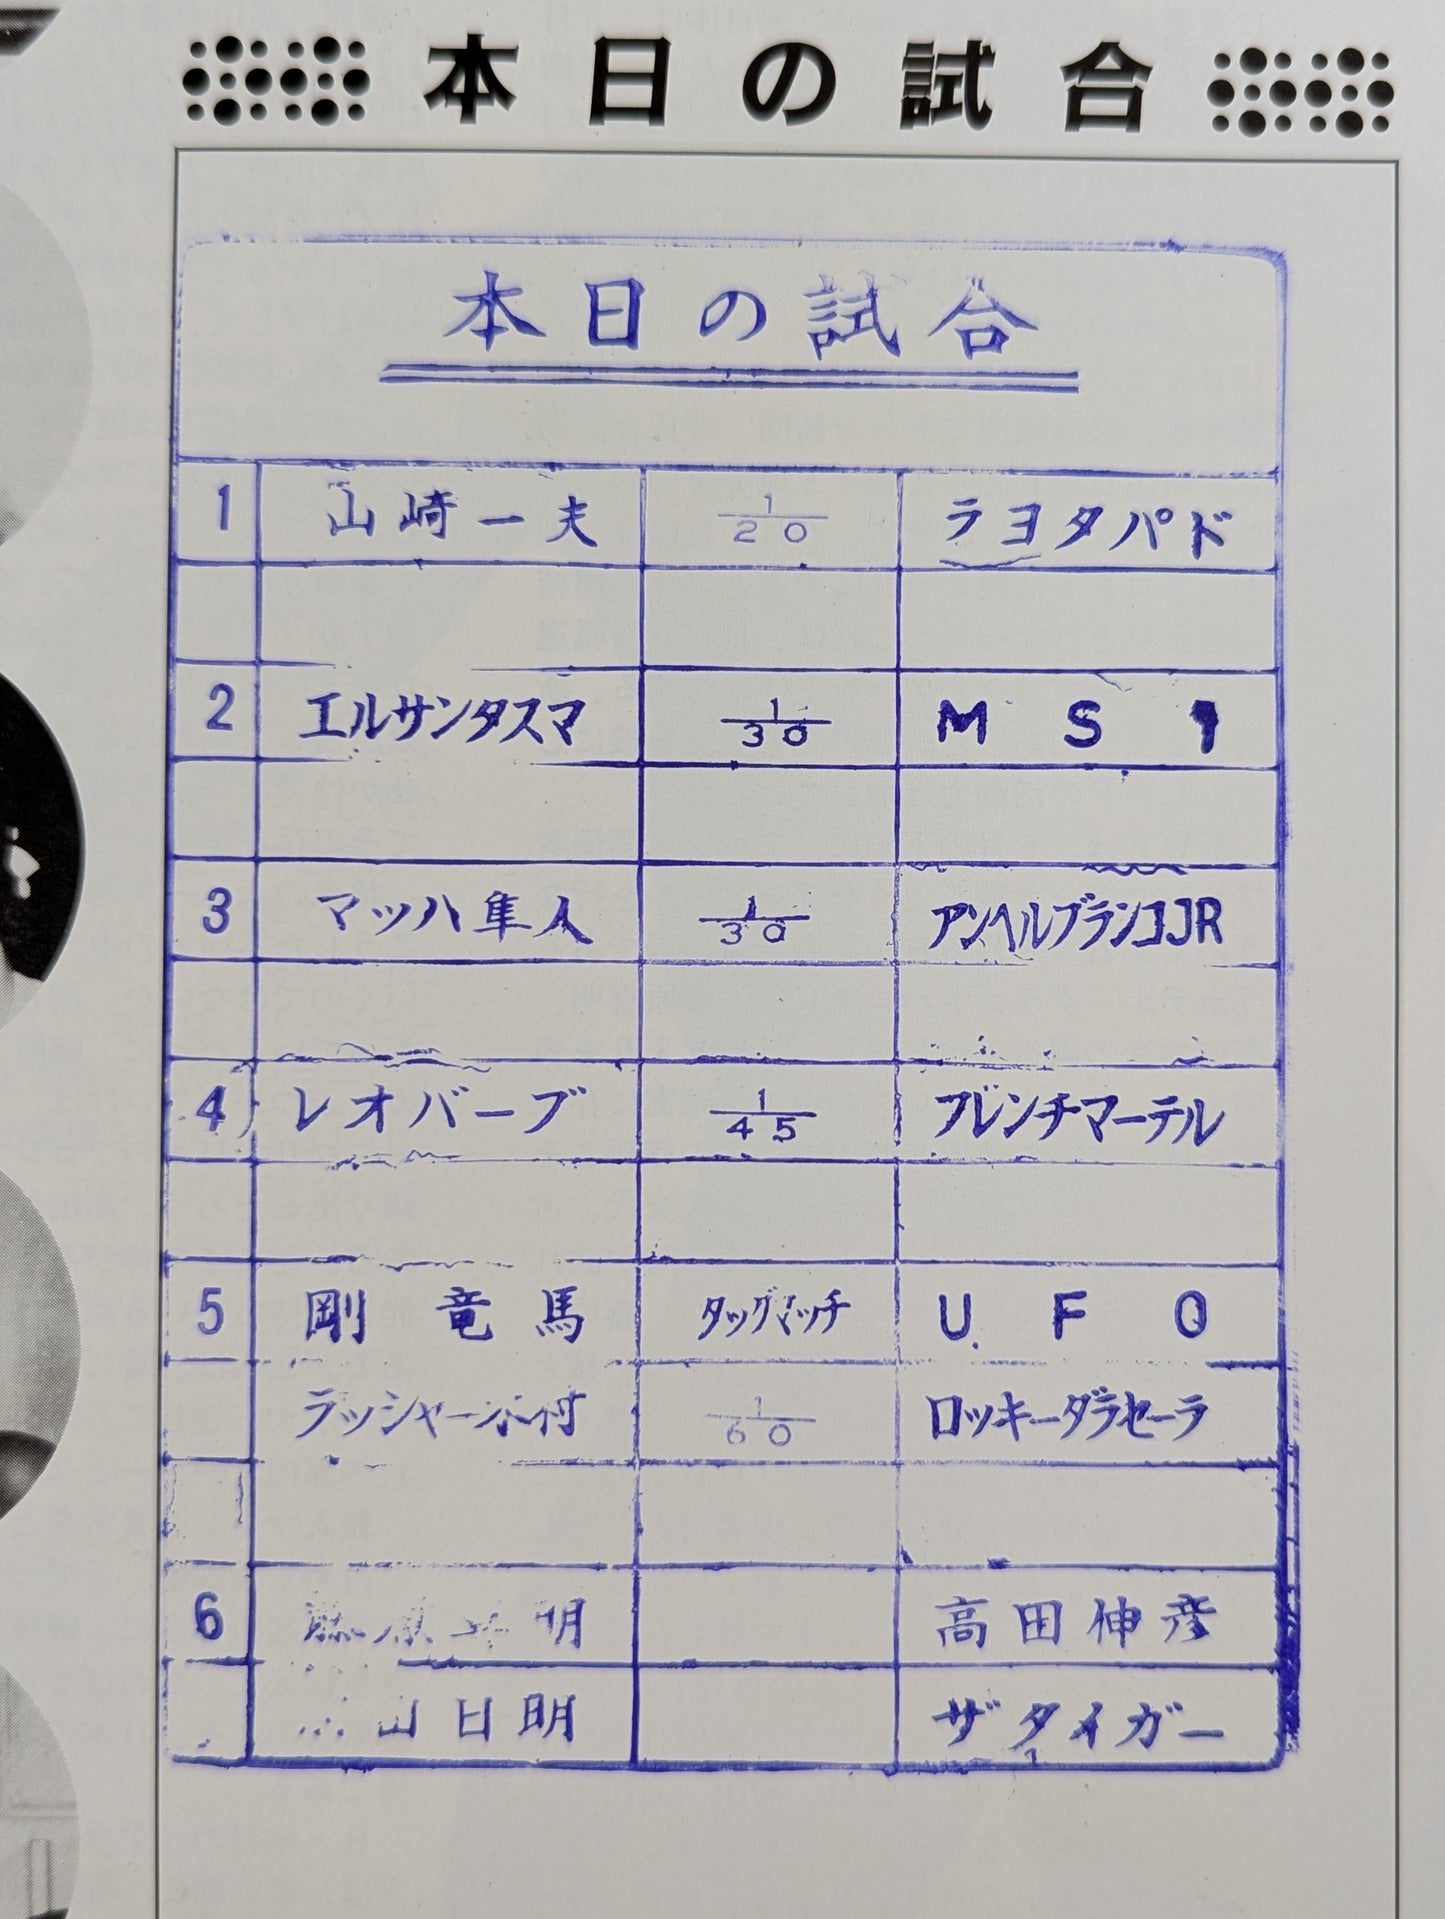 本日の試合
本日の試合
1 山崎一夫 1/20 ラヨタパド
2 エルサンタスマ 1/30 MS1
3 マッハ隼人 1/30 アンヘルブランコJR
4 レオバーブ 1/45 フレンチマーテル
5 剛竜馬 タッグマッチ UFO
ラッシャー木村 1/60 ロッキーダラセーラ
6 藤原 明 高田伸彦
山日明 ザタイガー